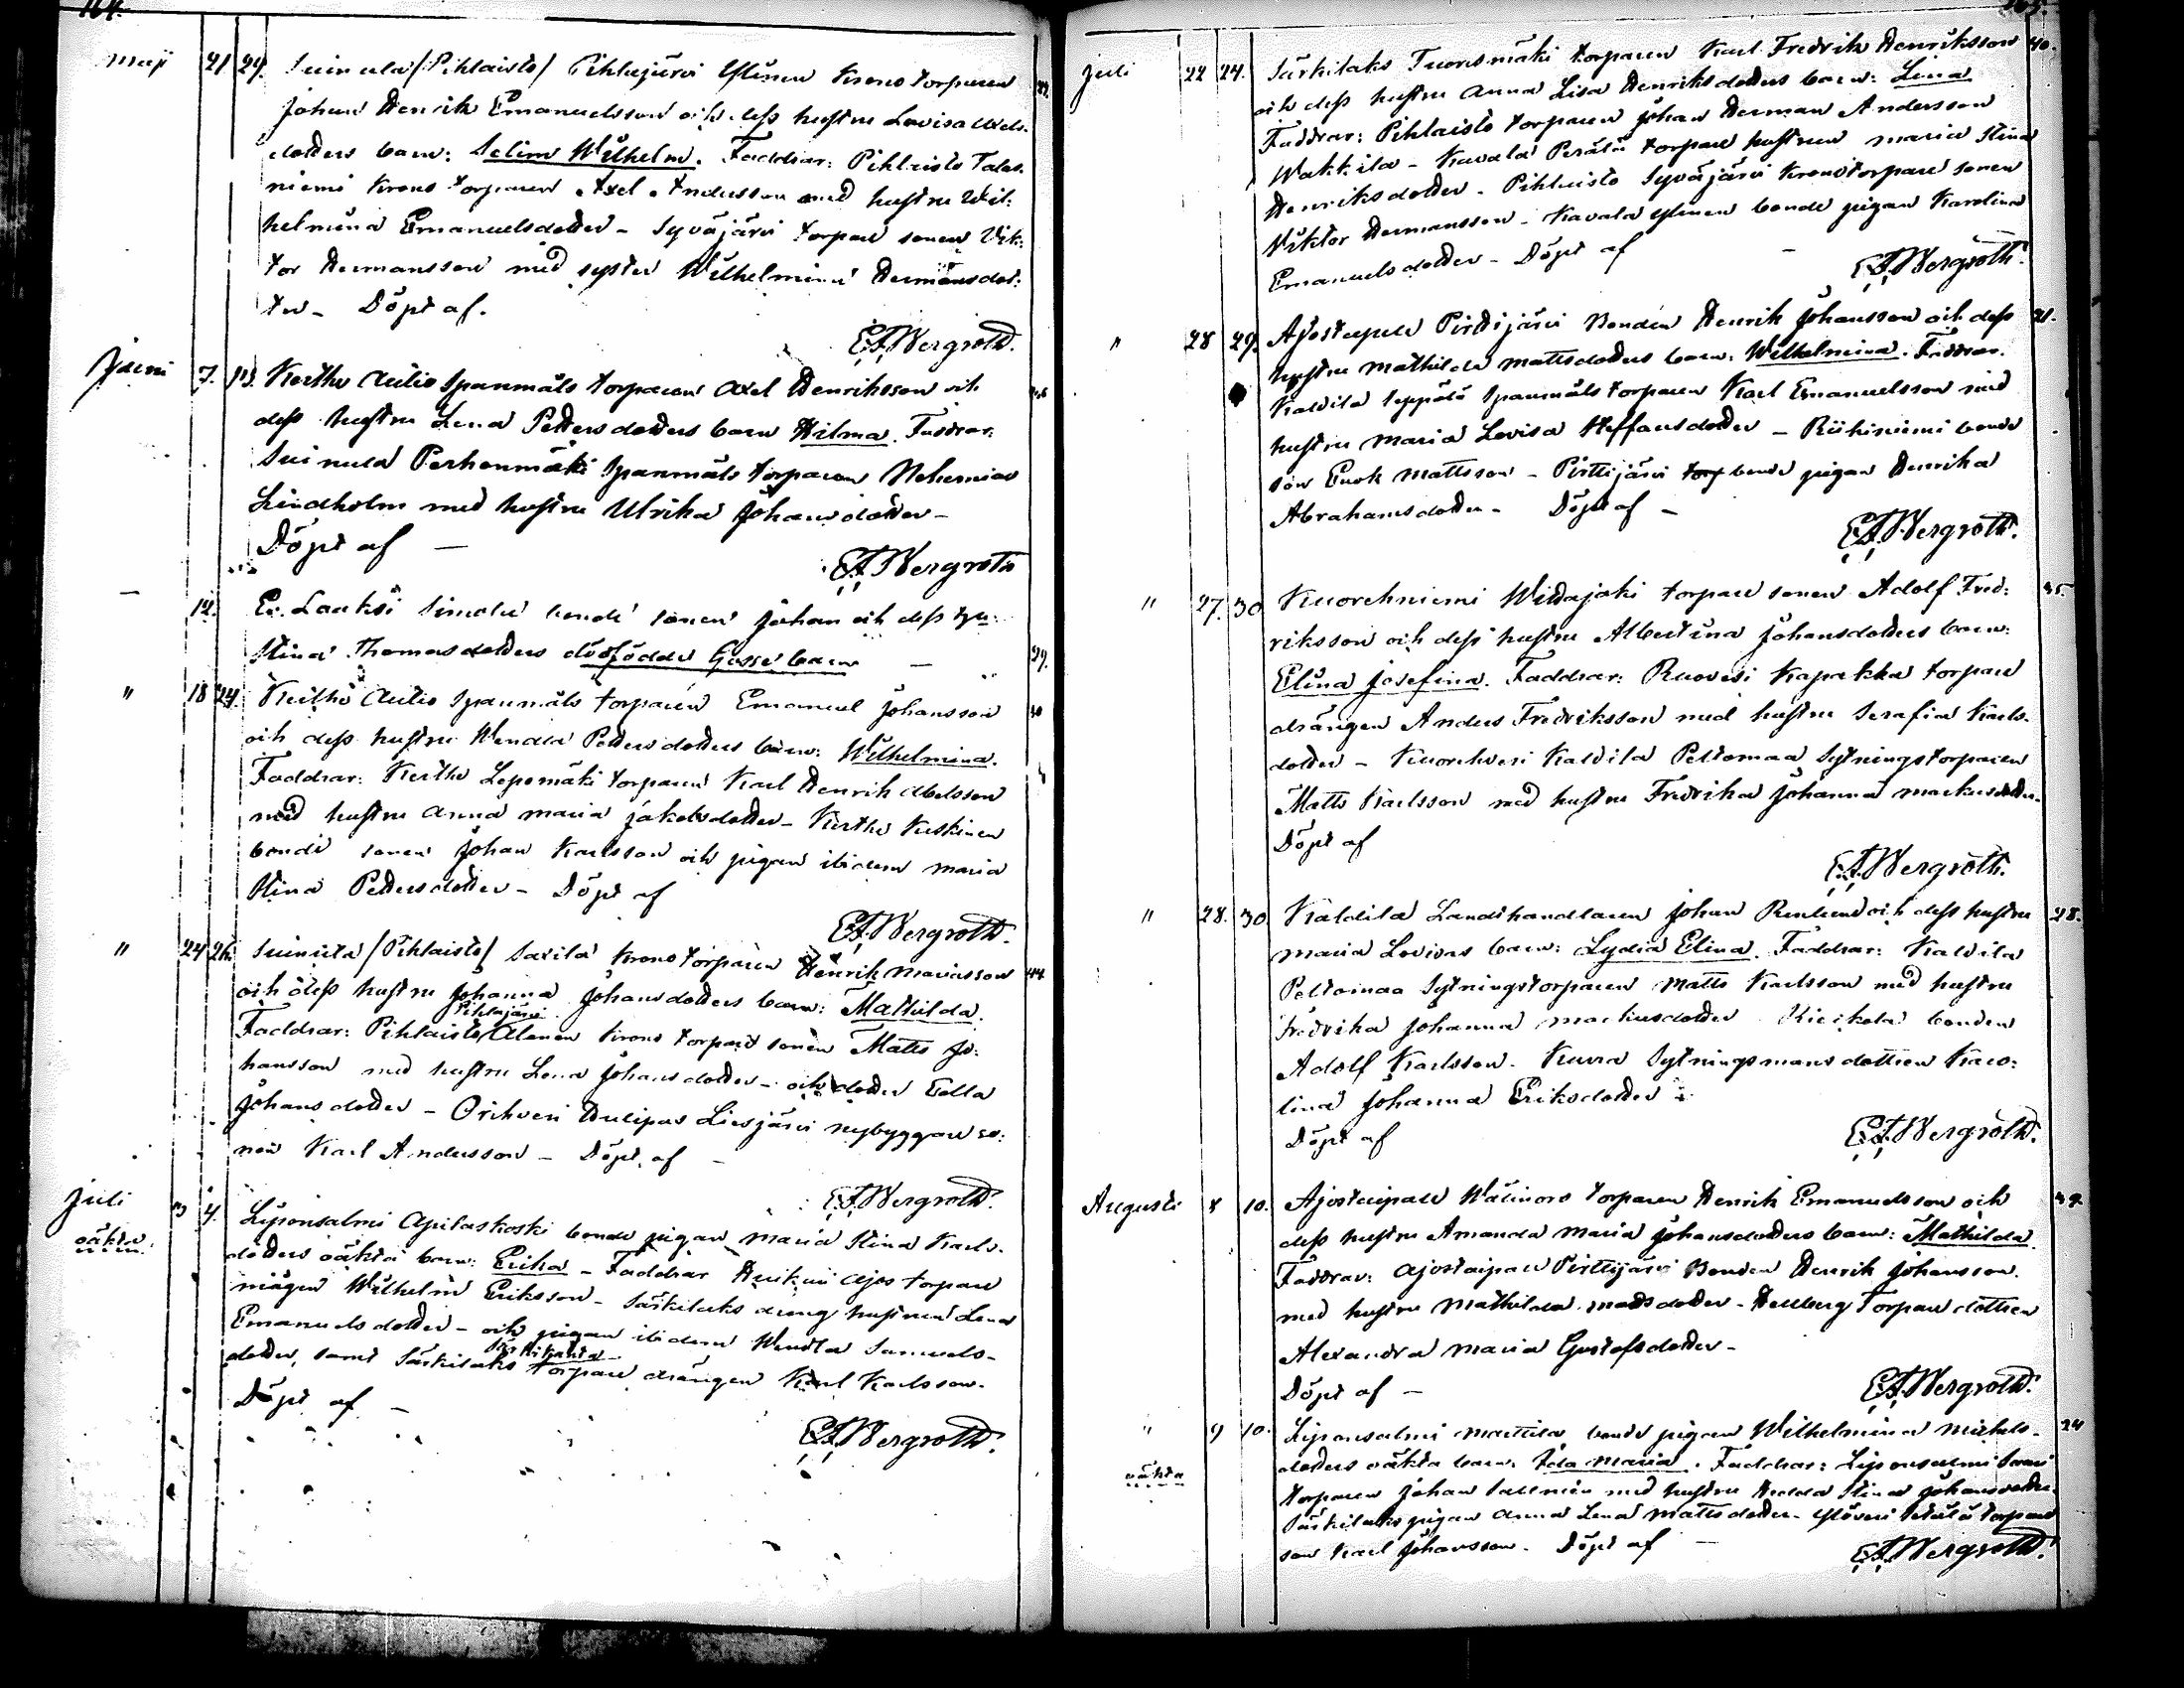 164.
Maji 21 24. Suinula /Pihlaisto/ Pihlajärvi Ylinen Krono torparen
Johan Henrik Emanuelsson och dess hustru Lovisa Axels-
dotters barn: Selim Wilhelm. Faddrar: Pihlaisto Talas-
niemi Krono torparen Axel Andersson med hustru Wil-
helmina Emanuelsdotter - Syväjärvi torpare sonen Vik-
tor Hermansson med syster Wilhelmina Hermansdot-
ter - Döpt af.
E.A. Wergroth.
Juni 7. 13. Kertho Autio Spanmåls torparen Axel Henriksson och
dess hustru Lena Pettersdotters barn Hilma. Faddrar:
Suinula Perhonmäki Spanmåls torparen Nehemias
Lindholm med hustru Ulrika Johansdotter -
Döpt af -
E.A. Wergroth
12. Ev. Laaksi Simola bonde sonen Johan och dess
Stina Thomasdotters dödfödda Gosse barn - 39.
" 18 24. Kertho Autio Spanmåls torparen Emanuel Johansson
och dess hustru Wendla Pettersdotters barn: Wilhelmina.
Faddrar: Kertho Lepomäki torparen Karl Henrik Abelsson
med hustru Anna Maria Jakobsdotter - Kertho Keskinen
bonde sonen Johan Karlsson och pigan ibidem Maria
Stina Pettersdotter - Döpt af
E.A. Wergroth.
" 24 26. Suinula /Pihlaisto/ Saxila Krono torparen Henrik Mariasson 44.
och dess hustru Johanna Johansdotters barn: Mathilda.
Pihlajärvi
Faddrar: Pihlaisto Alanen Krono torpare sonen Matts Jo-
hansson med hustru Lena Johansdotter - och dotter Edla
Johansdotter - Orihvesi Hulipas Liesjärvi nybyggare so-
nen Karl Andersson - Döpt af -
E.A. Wergroth.
Juli 3 4. Liponsalmi Apilaskoski bonde pigan Maria Stina Karls-
oäkta. dotters oäkta barn: Erika - Faddrar Ajos torpare
mågen Wilhelm Eriksson - Särkilaks dreng hustrun Lena
Emanuelsdotter - och pigan ibidem Wendla Samuels-
Särkikanta
dotter, samt Särkilaks torpare drängen Karl Karlsson.
Döpt af -
E.A. Wergroth.
165.
Juli 22 24. Särkilaks Tuoresmäki torparen Karl Fredrik Henriksson 40.
och dess hustru Anna Lisa Henriksdotters barn: Lina
Faddrar: Pihlaisto torparen Johan Herman Andersson
Wakkila - Kavala Perälä torpare hustrun Maria Stina
Henriksdotter - Pihlaisto Syväjärvi Kronotorpare sonen
Viktor Hermansson - Kavala Ylinen bonde pigan Karolina
Emanuelsdotter - Döpt af -
E.A. Wergroth.
" 28 29. Ajostaipale Pirttijärvi Bonden Henrik Johansson och dess 21.
hustru Mathilda Mattsdotters barn: Wilhelmina. Faddrar.
Kaldila Seppälä Spanmåls torparen Karl Emanuelsson med
hustru Maria Lovisa Steffansdotter - Riihiniemi bonde
son Enok Mattsson - Pirttijärvi torp bonde pigan Henrika
Abrahamsdotter - Döpt af -
E.A. Wergroth.
" 27. 30 Kuorehniemi Widajoki torpare sonen Adolf Fred- 35.
riksson och dess hustru Albertina Johansdotters barn:
Elina Josefina. Faddrar: Ruovesi Kapakka torpare
drängen Anders Fredriksson med hustru Serafia Karls-
dotter - Kuorehvesi Kaldila Peltomaa Sytningstorparen
Matts Karlsson med hustru Fredrika Johanna Markusdotter.
Döpt af
E.A. Wergroth.
" 28. 30. Kaldila Landthandlaren Johan och dess hustru 28.
Maria Lovisas barn: Lydia Elina. Faddrar: Kaldila
Peltomaa Sytningstorparen Matts Karlsson med hustru
Fredrika Johanna Markusdotter. bonden
Adolf Karlsson. Kuura Sytningsmans dottren Karo-
lina Johanna Eriksdotter -
Döpt af
E.A. Wergroth.
Augusti 8 10. Ajostaipale Wälimors torparen Henrik Emanuelsson och 39.
dess hustru Amanda Maria Johansdotters barn: Mathilda.
Faddrar: Ajostaipale Pirttijärvi Bonden Henrik Johansson.
med hustru Mathilda Mattsdotter - Hellberg Torpare dottren
Alexandra Maria Gustafsdotter -
Döpt af -
E.A. Wergroth.
" 9 10. Liponsalmi Marttila bonde pigan Wilhelmina Michels- 24
oäkta dotters oäkta barn: Ida Maria. Faddrar: Liponsalmi
torparen Johan Sallmén med hustru Hedda Stina Johansdotter.
Särkilaks pigan Anna Lena Mattsdotter - torpare
son Karl Johansson. Döpt af -
E.A. Wergroth.